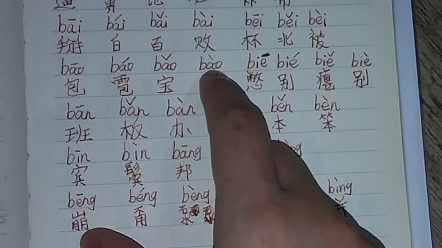 bāi bái bǎi bài bēi běi bèi
掰 白 百 败 杯 北 被
bāo báo bǎo bào biē bié biě biè
包 雹 宝 憋 别 瘪 别
bān bǎn bàn běn bèn
班 板 办 本 笨
bīn bìn bāng
宾 鬓 邦
bēng béng bèng bìng
崩 甭